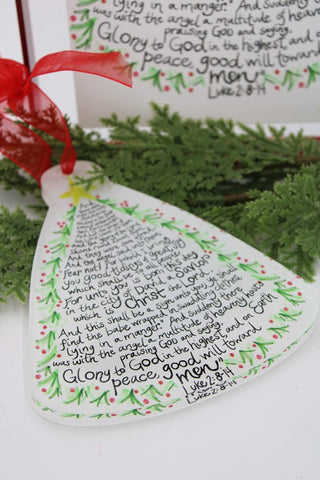 lying in a manger." And Suddenly
was with the angel a multitude of heavenly
praising GOD and saying,
Glory to GOD in the highest, and on
peace, good will toward
men."
Luke 2:8-14
Fear not! for behold
you good tidings of great
which shall be to all people
For unto you is born this day
in the city of David a Savior
which is Christ the Lord
And this shall be a sign unto you; Ye shall
find the babe wrapped in swaddling clothes
lying in a manger." And suddenly there
was with the angel a multitude of heavenly
praising GOD and saying,
Glory to GOD in the highest, and on Earth
peace, good will toward
men."
Luke 2:8-14
Luke 2:8-14